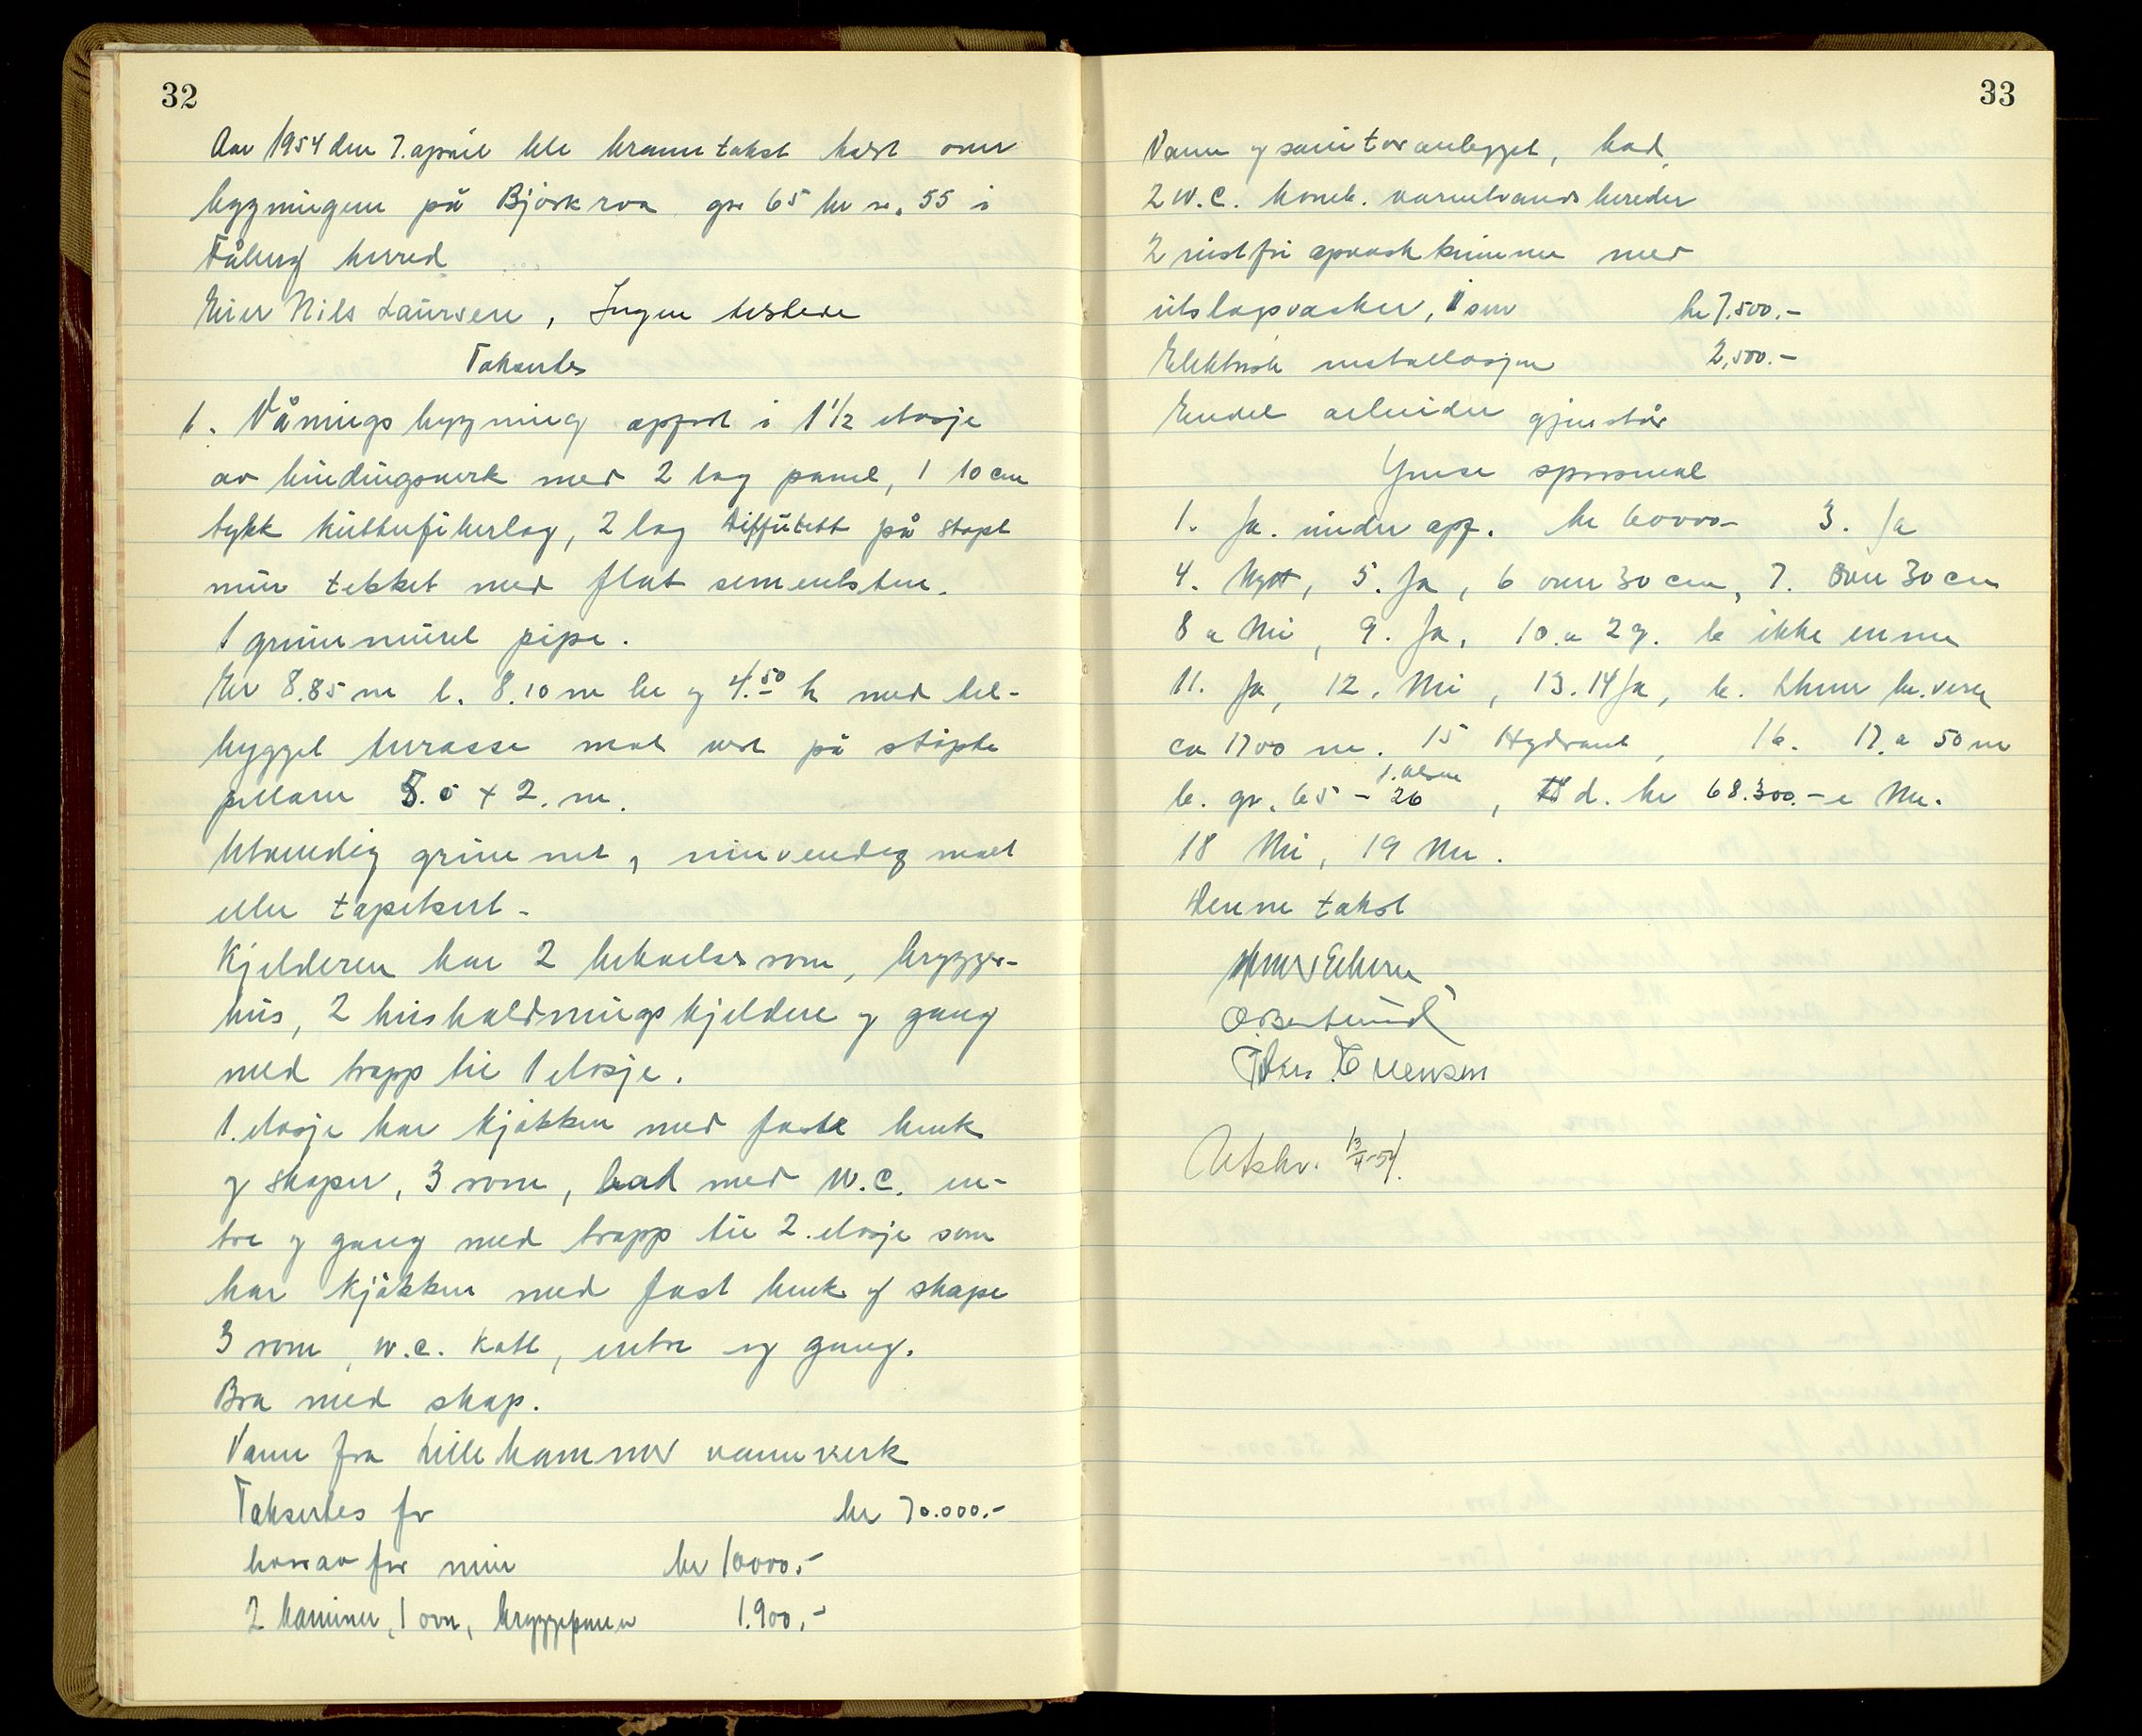 32
Aar 1954 den 7. april ble branntakst holdt over
bygningene på Björkroa gnr 65 br nr. 55 i
Fåberg herred
Eier Nils Laursen, Ingen heftelse
Taksertes
1. Våningsbygning oppført i 1 1/2 etasje
av bindingsverk med 2 lag panel, 1 10 cm
tykk kutterfiberlag, 2 lag diffutett på støpt
mur tekket med flat sementsten.
1 grunnmuret pipe.
Er 8.85 m l. 8.10 m br og 4.50 h med til-
bygget terrasse mot vest på støpte
pillarer 5.0 x 2. m.
Utvendig grunnet, innvendig malt
eller tapetsert.
Kjelderen har 2 beboelsesrom, brygger-
hus, 2 husholdningskjeldere og gang
med trapp til 1 etasje.
1. etasje har kjøkken med faste benk
og skaper, 3 rom, bad med W.C. en-
tre og gang med trapp til 2. etasje som
har kjøkken med fast benk og skape
3 rom, w.c. kott, entre og gang.
Bra med skap.
Vann fra Lillehammer vannverk
Taksertes for kr 70.000.-
hvorav for mur kr 10000.-
2 kaminer, 1 ovn, bryggepanne 1.900.-
33
Vann og sanitæranlegget, bad,
2 W.C. komb. varmtvandsbereder
2 rustfri opvaskkummer med
utslagsvasker, 1 sev kr 7.500.-
Elektrisk installasjon 2,500.-
Endel arbeider gjenstår
Ymse spørsmål
1. Ja. under opf. kr 60000- 3. Ja
4. Nytt, 5. Ja, 6 over 30 cm, 7. Over 30 cm
8 a Nei, 9. Ja, 10. a 2 g. b ikke ennu
11. Ja, 12. Nei, 13. 14 Ja, b. Lhmr br. vesen
ca 1700 m. 15 Hydrant, 16. 17. a 50 m
b. gr. 65 - 26, d. kr 68.300.- e Nei.
18 Nei, 19 Nei.
Denne takst
O. Bentrud
Utskr. 13/4-54.